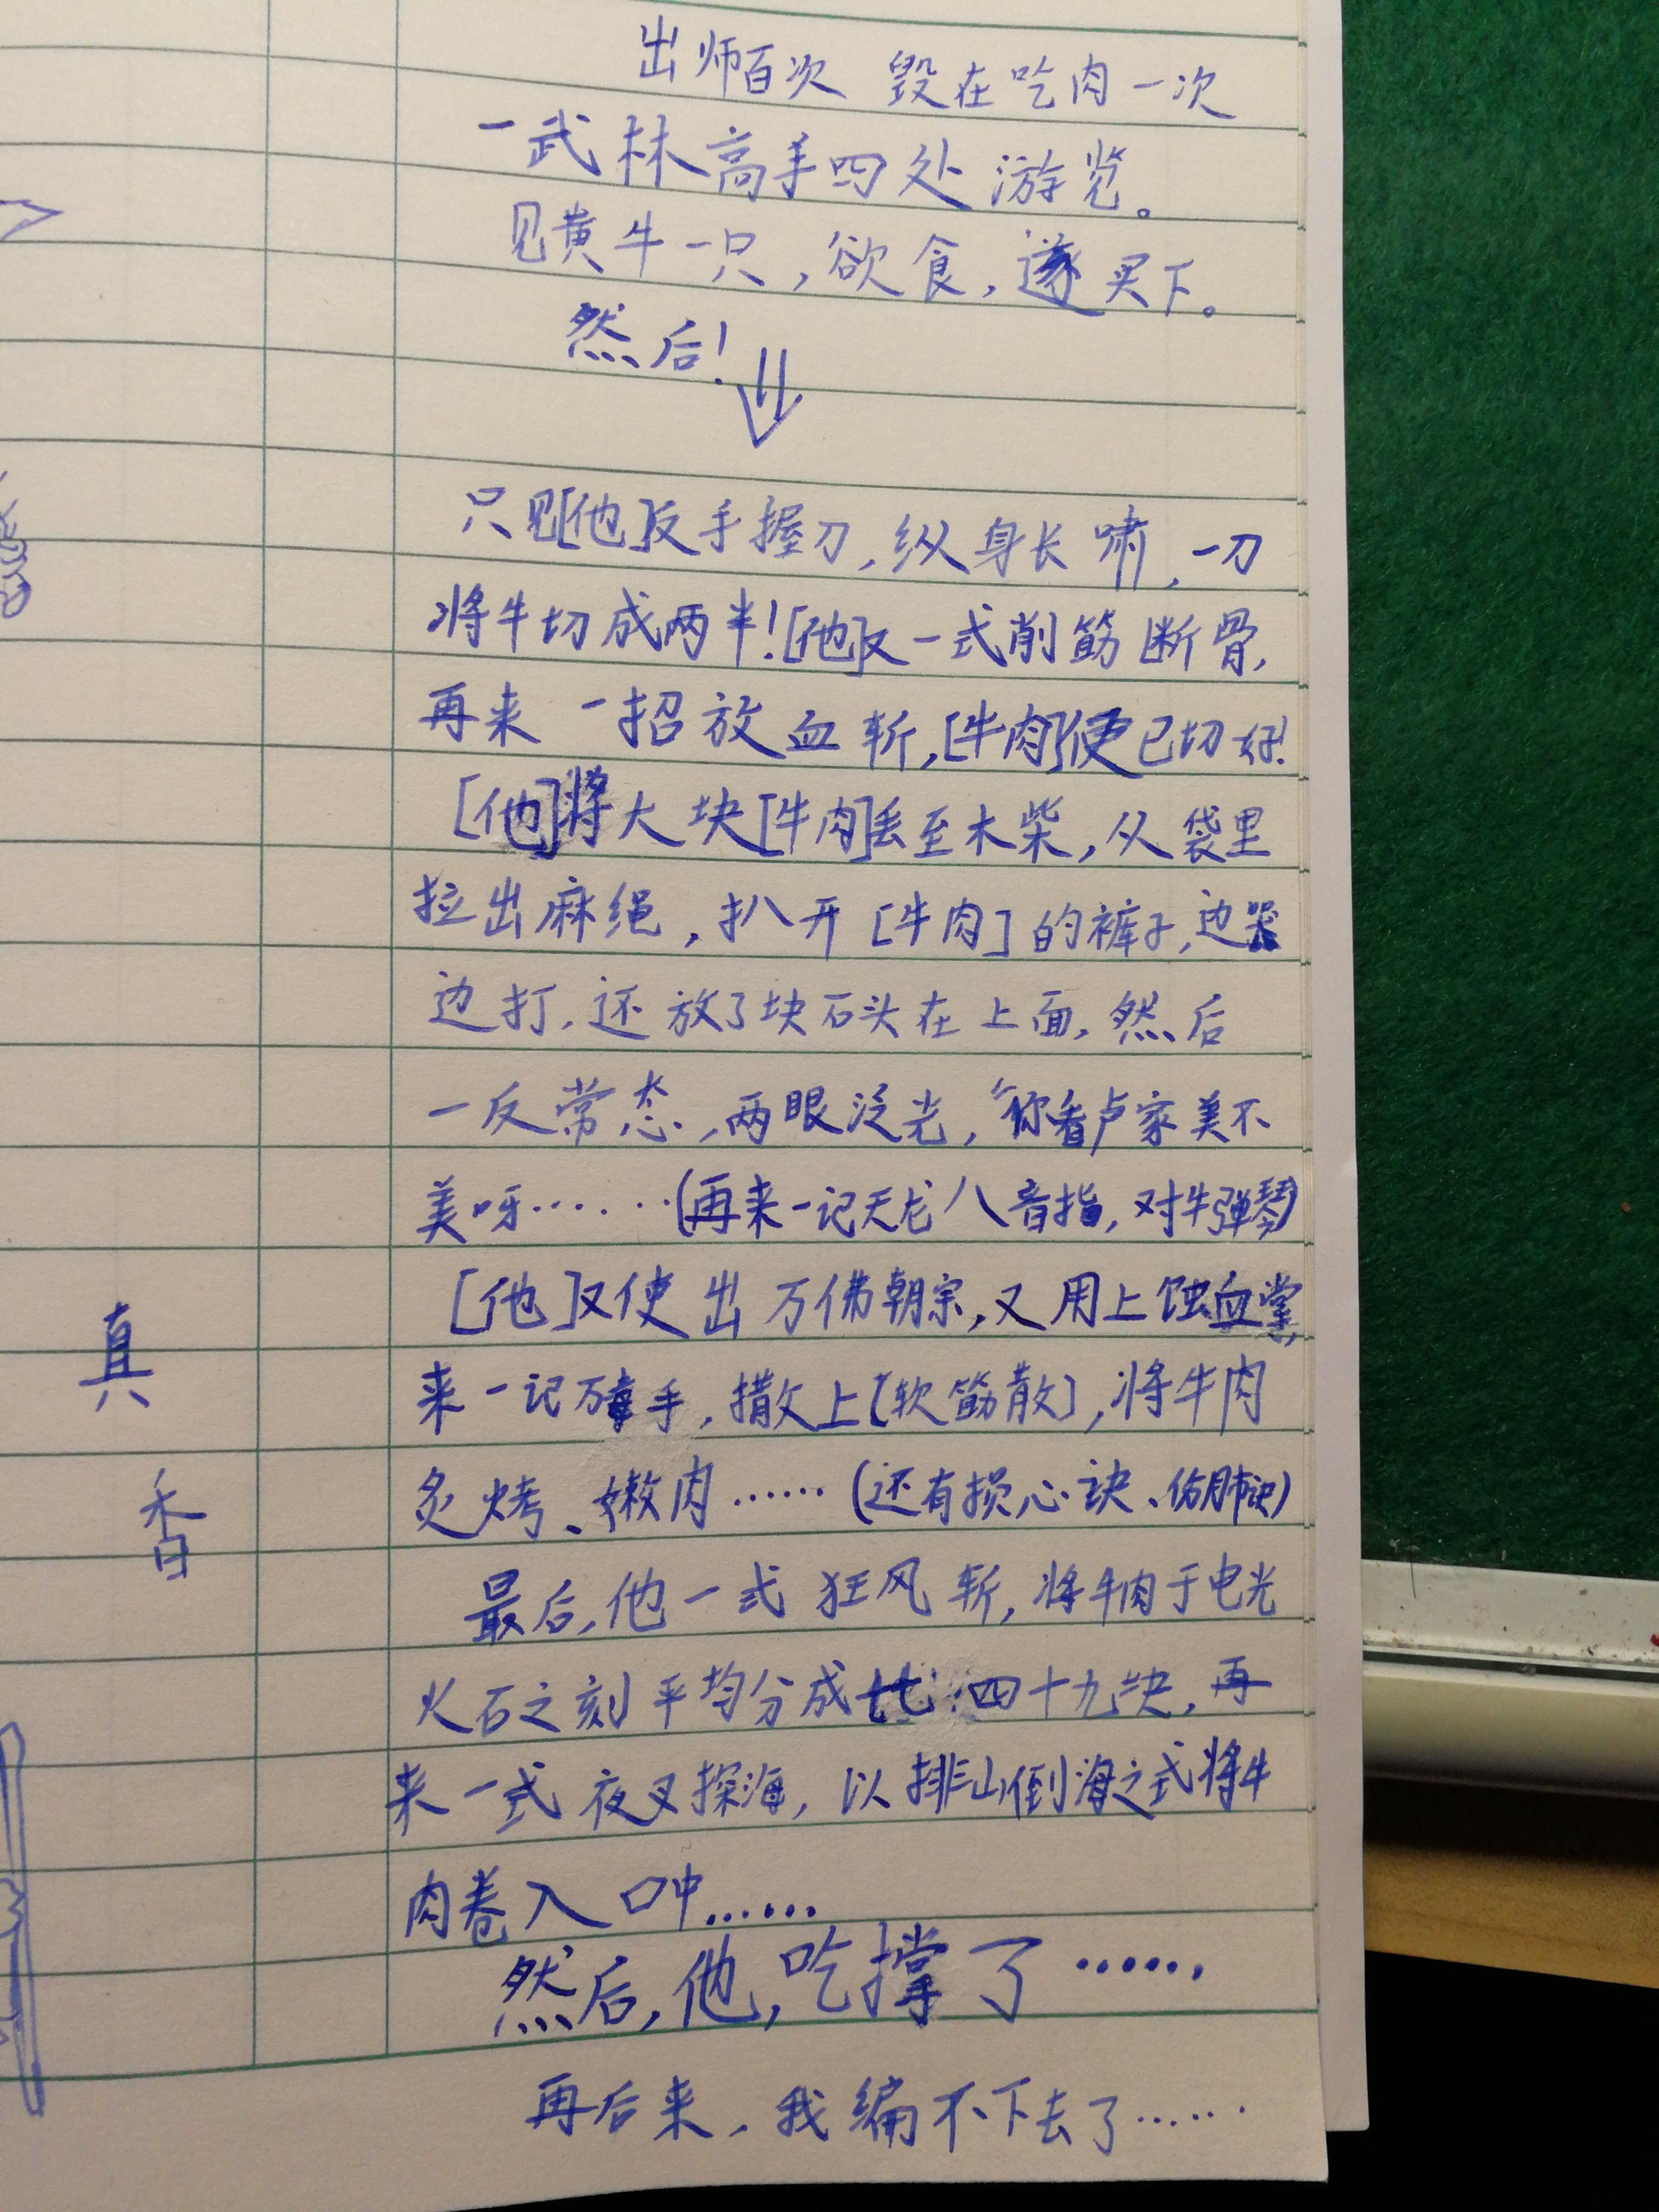 出师百次 毁在吃肉一次
一武林高手四处游览。
见黄牛一只，欲食，遂买下。
然后！
只见[他]反手握刀，纵身长啸，一刀
将牛切成两半！[他]又一式削筋断骨，
再来一招放血斩，[牛肉]便已切好！
[他]将大块[牛肉]丢至木柴，从袋里
拉出麻绳，扒开[牛肉]的裤子，边哭
边打，还放了块石头在上面，然后
一反常态，两眼泛光，“你看卢家美不
美呀……（再来一记天龙八音指，对牛弹琴）
[他]又使出万佛朝宗，又用上蚀血掌，
来一记万毒手，撒上[软筋散]，将牛肉
炙烤、嫩肉……（还有损心诀、伤肺诀）
最后，他一式狂风斩，将牛肉于电光
火石之刻平均分成七七四十九块，再
来一式夜叉探海，以排山倒海之式将牛
肉卷入口中……
然后，他，吃撑了……
再后来，我编不下去了……
真
香